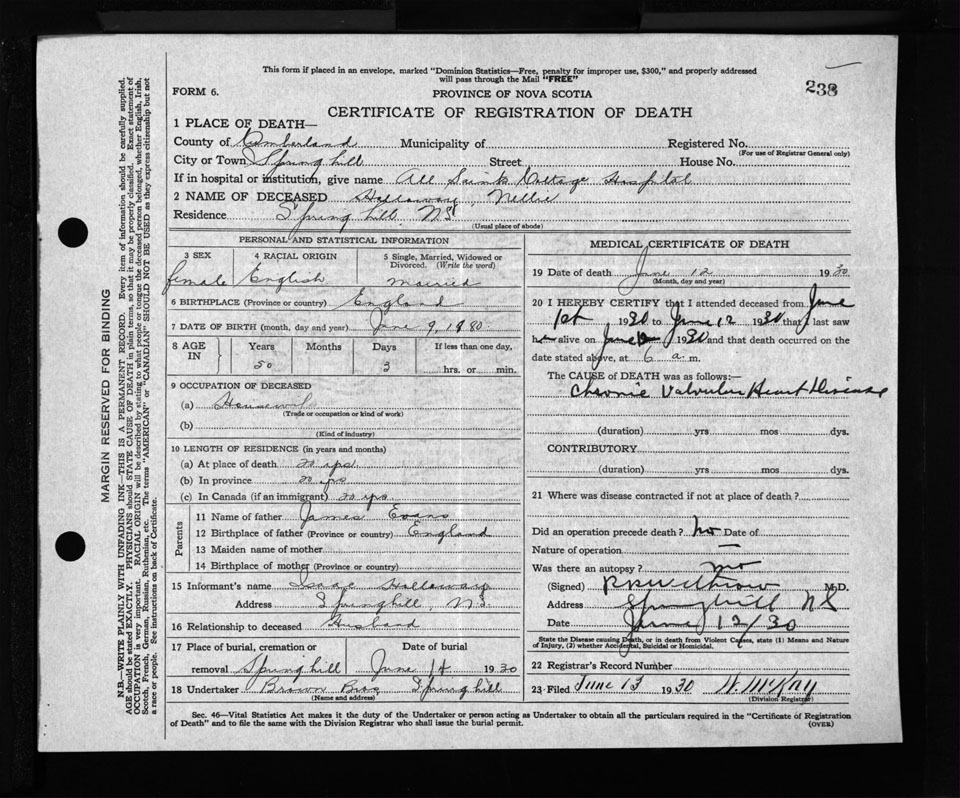 This form if placed in an envelope, marked "Dominion Statistics—Free, penalty for improper use, $300," and properly addressed
will pass through the Mail "FREE"
238
FORM 6.
PROVINCE OF NOVA SCOTIA
CERTIFICATE OF REGISTRATION OF DEATH
1 PLACE OF DEATH—
County of Cumberland Municipality of Registered No.
(For use of Registrar General only)
City or Town Springhill Street House No.
If in hospital or institution, give name All Saints Cottage Hospital
2 NAME OF DECEASED Holloway, Nellie
Residence Springhill, N.S.
(Usual place of abode)
PERSONAL AND STATISTICAL INFORMATION
3 SEX 4 RACIAL ORIGIN 5 Single, Married, Widowed or
Divorced. (Write the word)
female English married
6 BIRTHPLACE (Province or country) England
7 DATE OF BIRTH (month, day and year) June 9, 1880
8 AGE IN Years Months Days If less than one day,
50 3 hrs. or min.
9 OCCUPATION OF DECEASED
(a) Housework
(Trade or occupation or kind of work)
(b)
(Kind of industry)
10 LENGTH OF RESIDENCE (in years and months)
(a) At place of death 20 yrs
(b) In province 20 yrs
(c) In Canada (if an immigrant) 20 yrs.
Parents
11 Name of father James Evans
12 Birthplace of father (Province or country) England
13 Maiden name of mother
14 Birthplace of mother (Province or country)
15 Informant's name Isaac Holloway
Address Springhill, N.S.
16 Relationship to deceased Husband
17 Place of burial, cremation or Date of burial
removal Springhill June 14 1930
18 Undertaker Brown Bros Springhill
(Name and address)
MEDICAL CERTIFICATE OF DEATH
19 Date of death June 12 1930
(Month, day and year)
20 I HEREBY CERTIFY that I attended deceased from June
1st 1930 to June 12 1930 that I last saw
her alive on June 1930 and that death occurred on the
date stated above, at 6 a. m.
The CAUSE of DEATH was as follows:—
Chronic Valvular Heart Disease
(duration) yrs mos dys.
CONTRIBUTORY
(duration) yrs mos dys.
21 Where was disease contracted if not at place of death?
Did an operation precede death? no Date of
Nature of operation —
Was there an autopsy? no
(Signed) M.D.
Address Springhill NS
Date June 12/30
State the Disease causing Death, or in death from Violent Causes, state (1) Means and Nature
of Injury, (2) whether Accidental, Suicidal or Homicidal.
22 Registrar's Record Number
23 Filed June 13 1930 W. McKay
(Division Registrar)
Sec. 46—Vital Statistics Act makes it the duty of the Undertaker or person acting as Undertaker to obtain all the particulars required in the "Certificate of Registration
of Death" and to file the same with the Division Registrar who shall issue the burial permit.
(OVER)
MARGIN RESERVED FOR BINDING
N.B.—WRITE PLAINLY WITH UNFADING INK—THIS IS A PERMANENT RECORD. Every item of information should be carefully supplied.
AGE should be stated EXACTLY. PHYSICIANS should STATE CAUSE OF DEATH in plain terms, so that it may be properly classified. Exact statement of
OCCUPATION is very important. RACIAL ORIGIN will be described by stating to what people or tongue the deceased person belonged, whether English, Irish,
Scotch, French, German, Russian, Ruthenian, etc. The terms "AMERICAN" or "CANADIAN" SHOULD NOT BE USED as they express citizenship but not
a race or people. See instructions on back of Certificate.